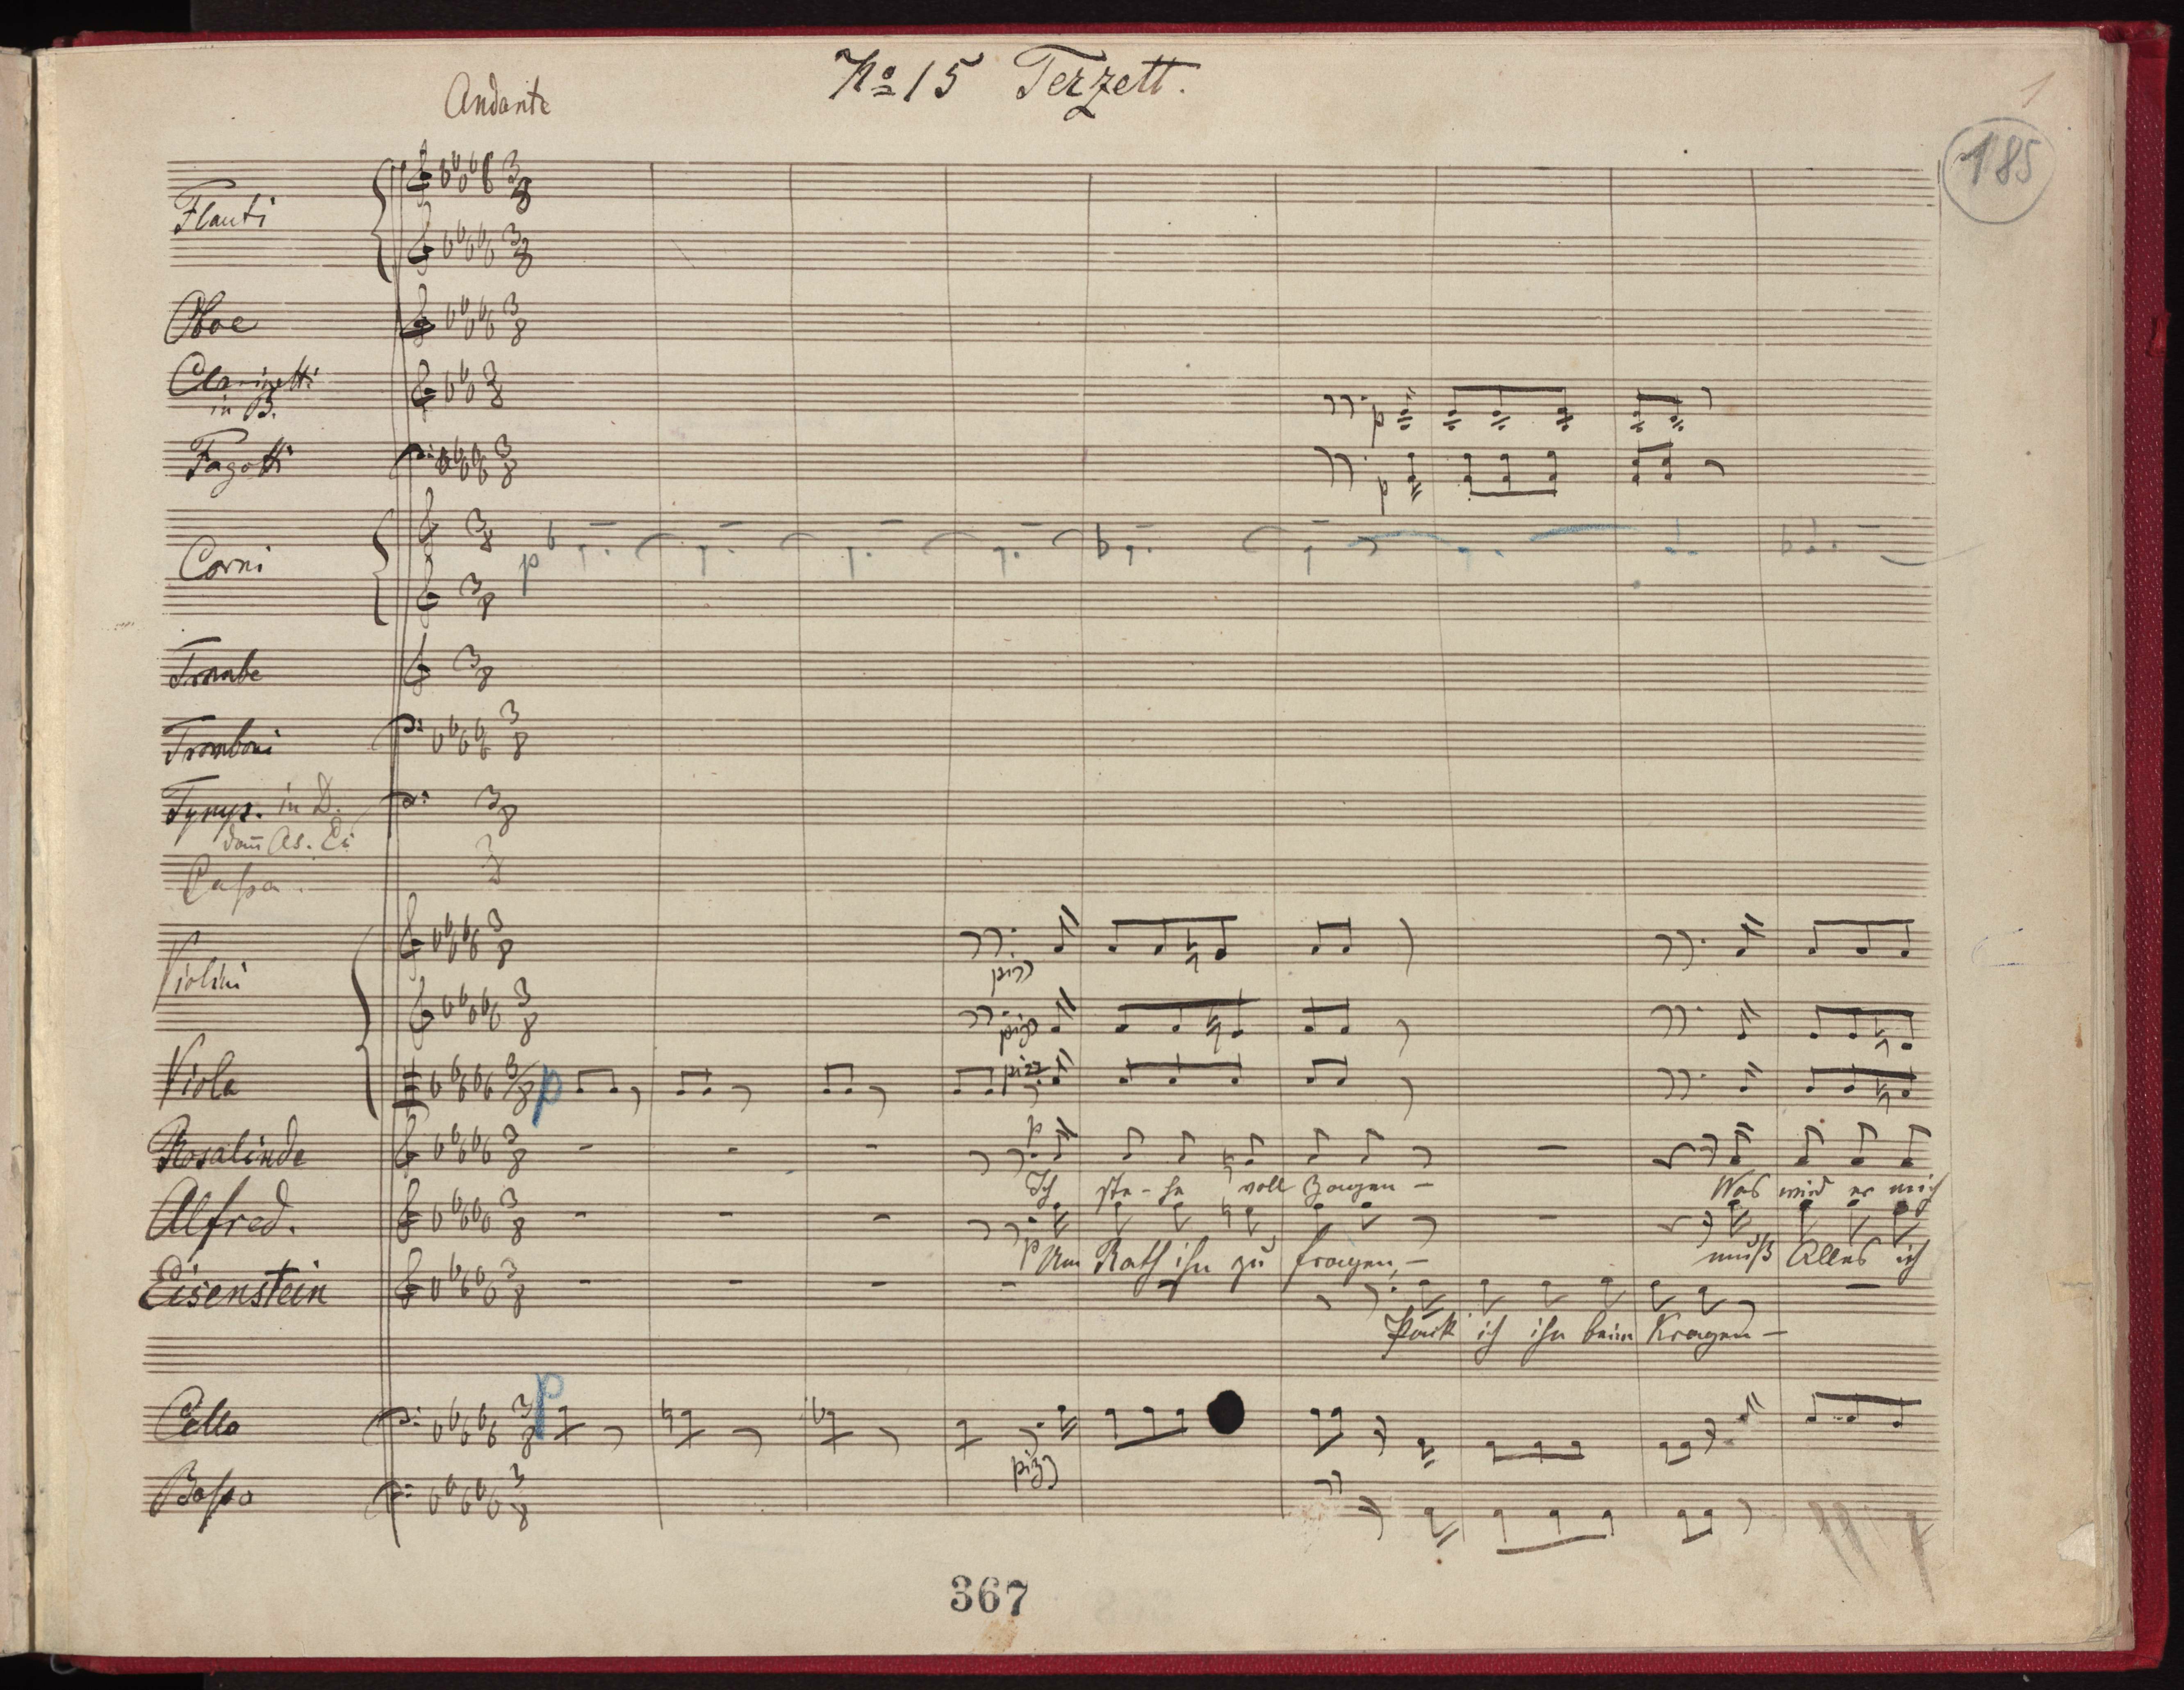 No 15 Terzett.
Andante
1
185
Flauti
Oboe
Clarinetti
in B.
p
Fagotti
p
Corni
p
Trombe
Tromboni
Tymp. in D.
dañ As.
Cassa.
Violini
pizz
pizz
Viola
p
pizz
Rosalinde
p
Ich ste-he voll Zagen –
Was wird er mich
Alfred.
p Um Rath ihn zu fragen, –
muß Alles ich
Eisenstein
Pack ich ihn beim Kragen –
Cello
p
pizz
Basso
367